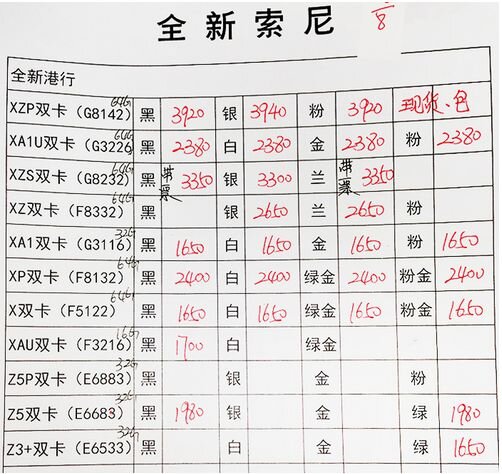 全新索尼 /8
全新港行
XZP双卡（G8142）64G 黑 3920 银 3940 粉 3920 现货.包
XA1U双卡（G3226）64G 黑 2380 白 2380 金 2380 粉 2380
XZS双卡（G8232）64G 黑 带票 3350 银 3300 兰 带票 3350
XZ双卡（F8332）64G 黑 银 2650 兰 2650 粉
XA1双卡（G3116）32G 黑 1650 白 1650 金 1650 粉 1650
XP双卡（F8132）64G 黑 2400 白 2400 绿金 2400 粉金 2400
X双卡（F5122）64G 黑 1650 白 1650 绿金 1650 粉金 1650
XAU双卡（F3216）16G 黑 1700 白 绿金
Z5P双卡（E6883）32G 黑 银 金 粉
Z5双卡（E6683）32G 黑 1980 银 金 绿 1980
Z3+双卡（E6533）32G 黑 白 金 绿 1650